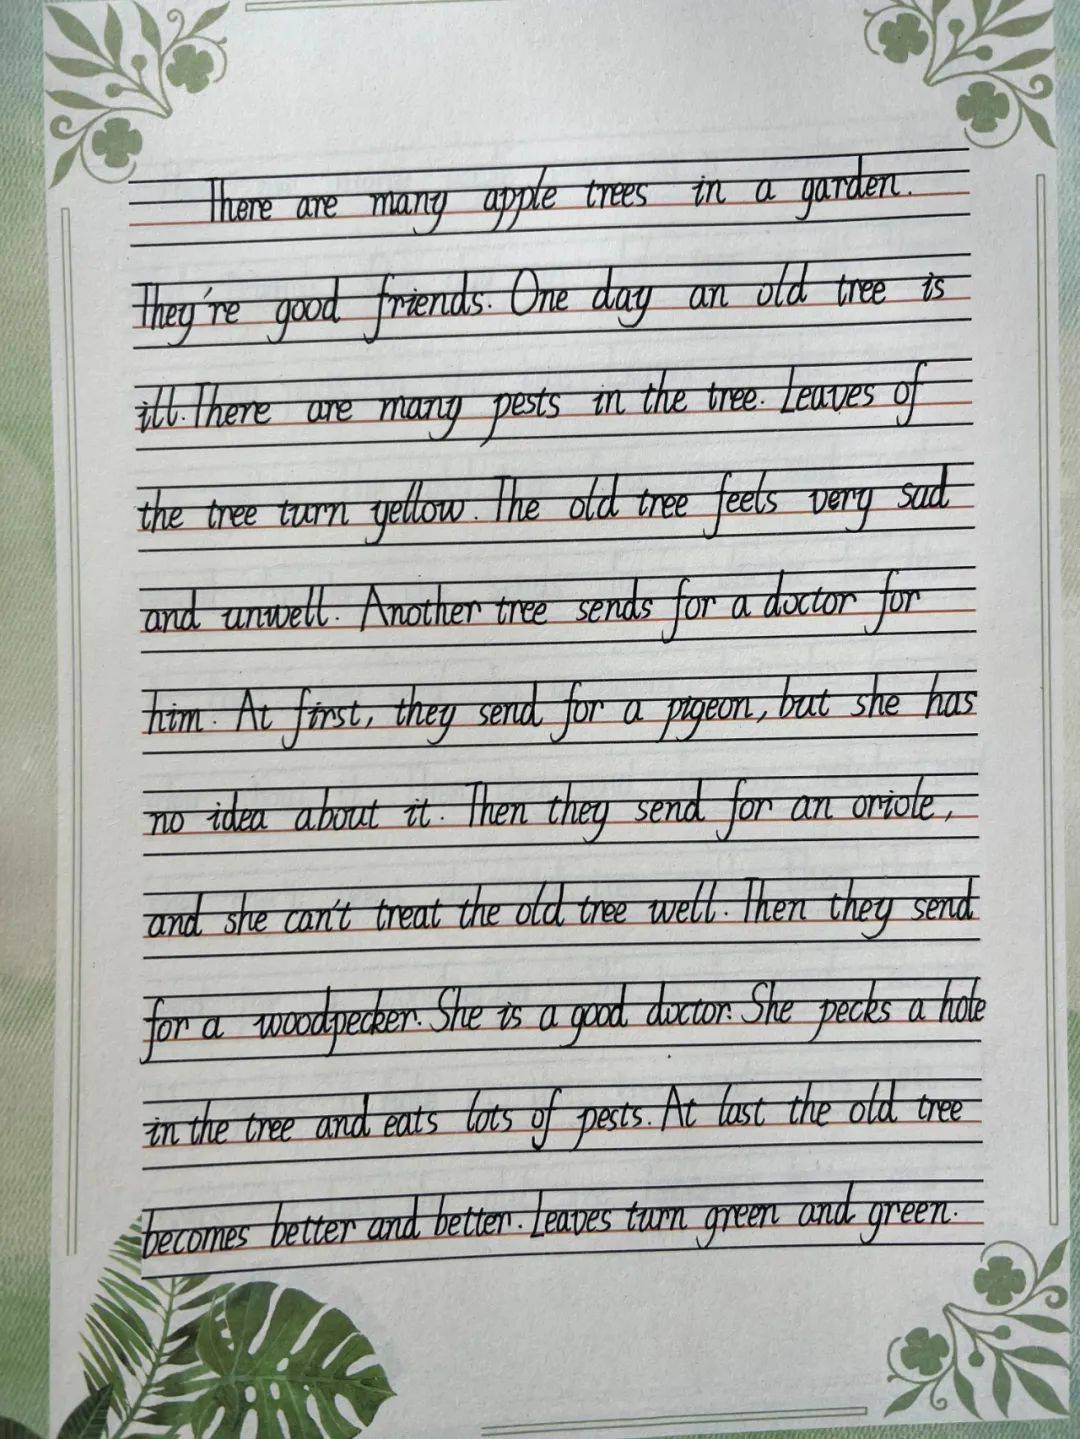 There are many apple trees in a garden.
They're good friends. One day an old tree is
ill. There are many pests in the tree. Leaves of
the tree turn yellow. The old tree feels very sad
and unwell. Another tree sends for a doctor for
him. At first, they send for a pigeon, but she has
no idea about it. Then they send for an oriole,
and she can't treat the old tree well. Then they send
for a woodpecker. She is a good doctor. She pecks a hole
in the tree and eats lots of pests. At last the old tree
becomes better and better. Leaves turn green and green.